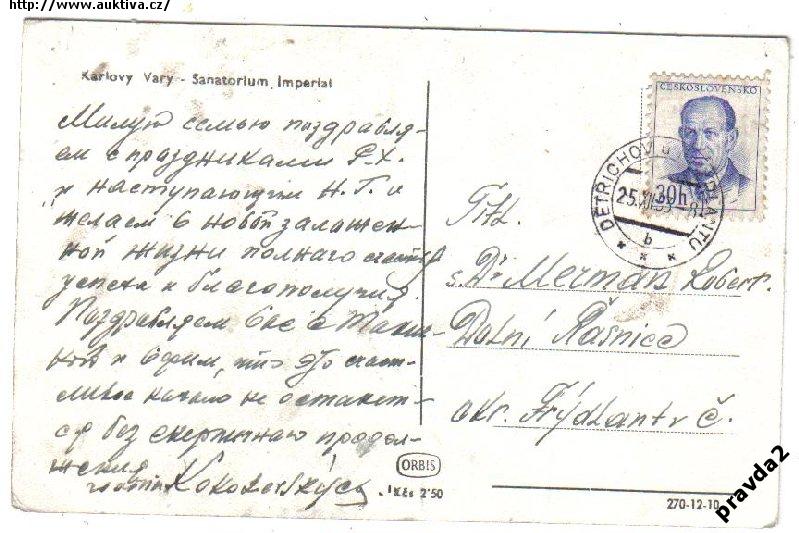 http://www.auktiva.cz/
Karlovy Vary - Sanatorium Imperial
Милую семью поздравля-
ем с праздниками Р.Х.
и наступающим Н.Г. и
желаем в новой заложен-
ной жизни полного счастья
успеха и благополучия.
Поздравляем Вас с
и верим, что это счаст-
ливое начало не останет-
ся без скорейшаго продол-
жения
rodina Kokoherských
ČESKOSLOVENSKO
30h
DĚTŘICHOV u FRÝDLANTU
25.XII.55
b
Tit.
s. Dr Merman Robert.
Dolní Řasnice
okr. Frýdlant v Č.
ORBIS
1 Kčs 2'50
270-12-10
pravda2